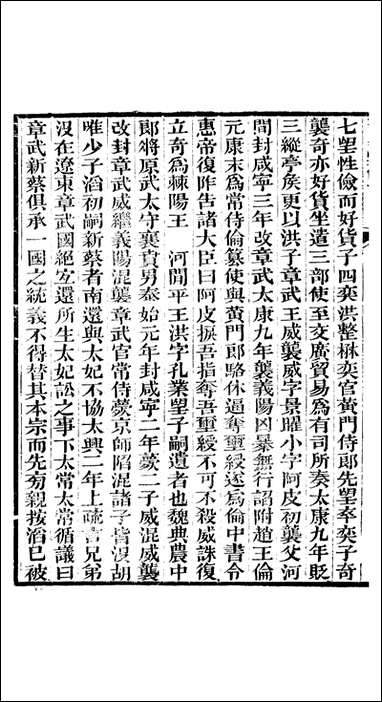 七望性儉而好貨子四奕洪整楙奕官黃門侍郎先望卒奕子奇
襲奇亦好貨坐遣三部使至交廣貿易爲有司所奏太康九年貶
三縱亭矦更以洪子章武王威襲威字景曜小字阿皮初襲父河
間封咸寧三年改章武太康九年襲義陽凶暴無行諂附趙王倫
元康末爲常侍倫簒使與黃門郎駱休逼奪璽綬遂爲倫中書令
惠帝復阼告諸大臣曰阿皮捩吾指奪吾璽綬不可不殺威誅復
立奇爲棘陽王　河閒平王洪字孔業望子嗣遺者也魏典農中
郎將原武太守襄賁男泰始元年封咸寧二年薨二子威混威襲
改封章武威繼義陽混襲章武官常侍薨京師陷混諸子皆沒胡
唯少子滔初嗣新蔡者南還與太妃不協太興二年上疏言兄弟
沒在遼東章武國絕宜還所生太妃訟之事下太常太常循議曰
章武新蔡俱承一國之統義不得替其本宗而先㫄親按滔已被